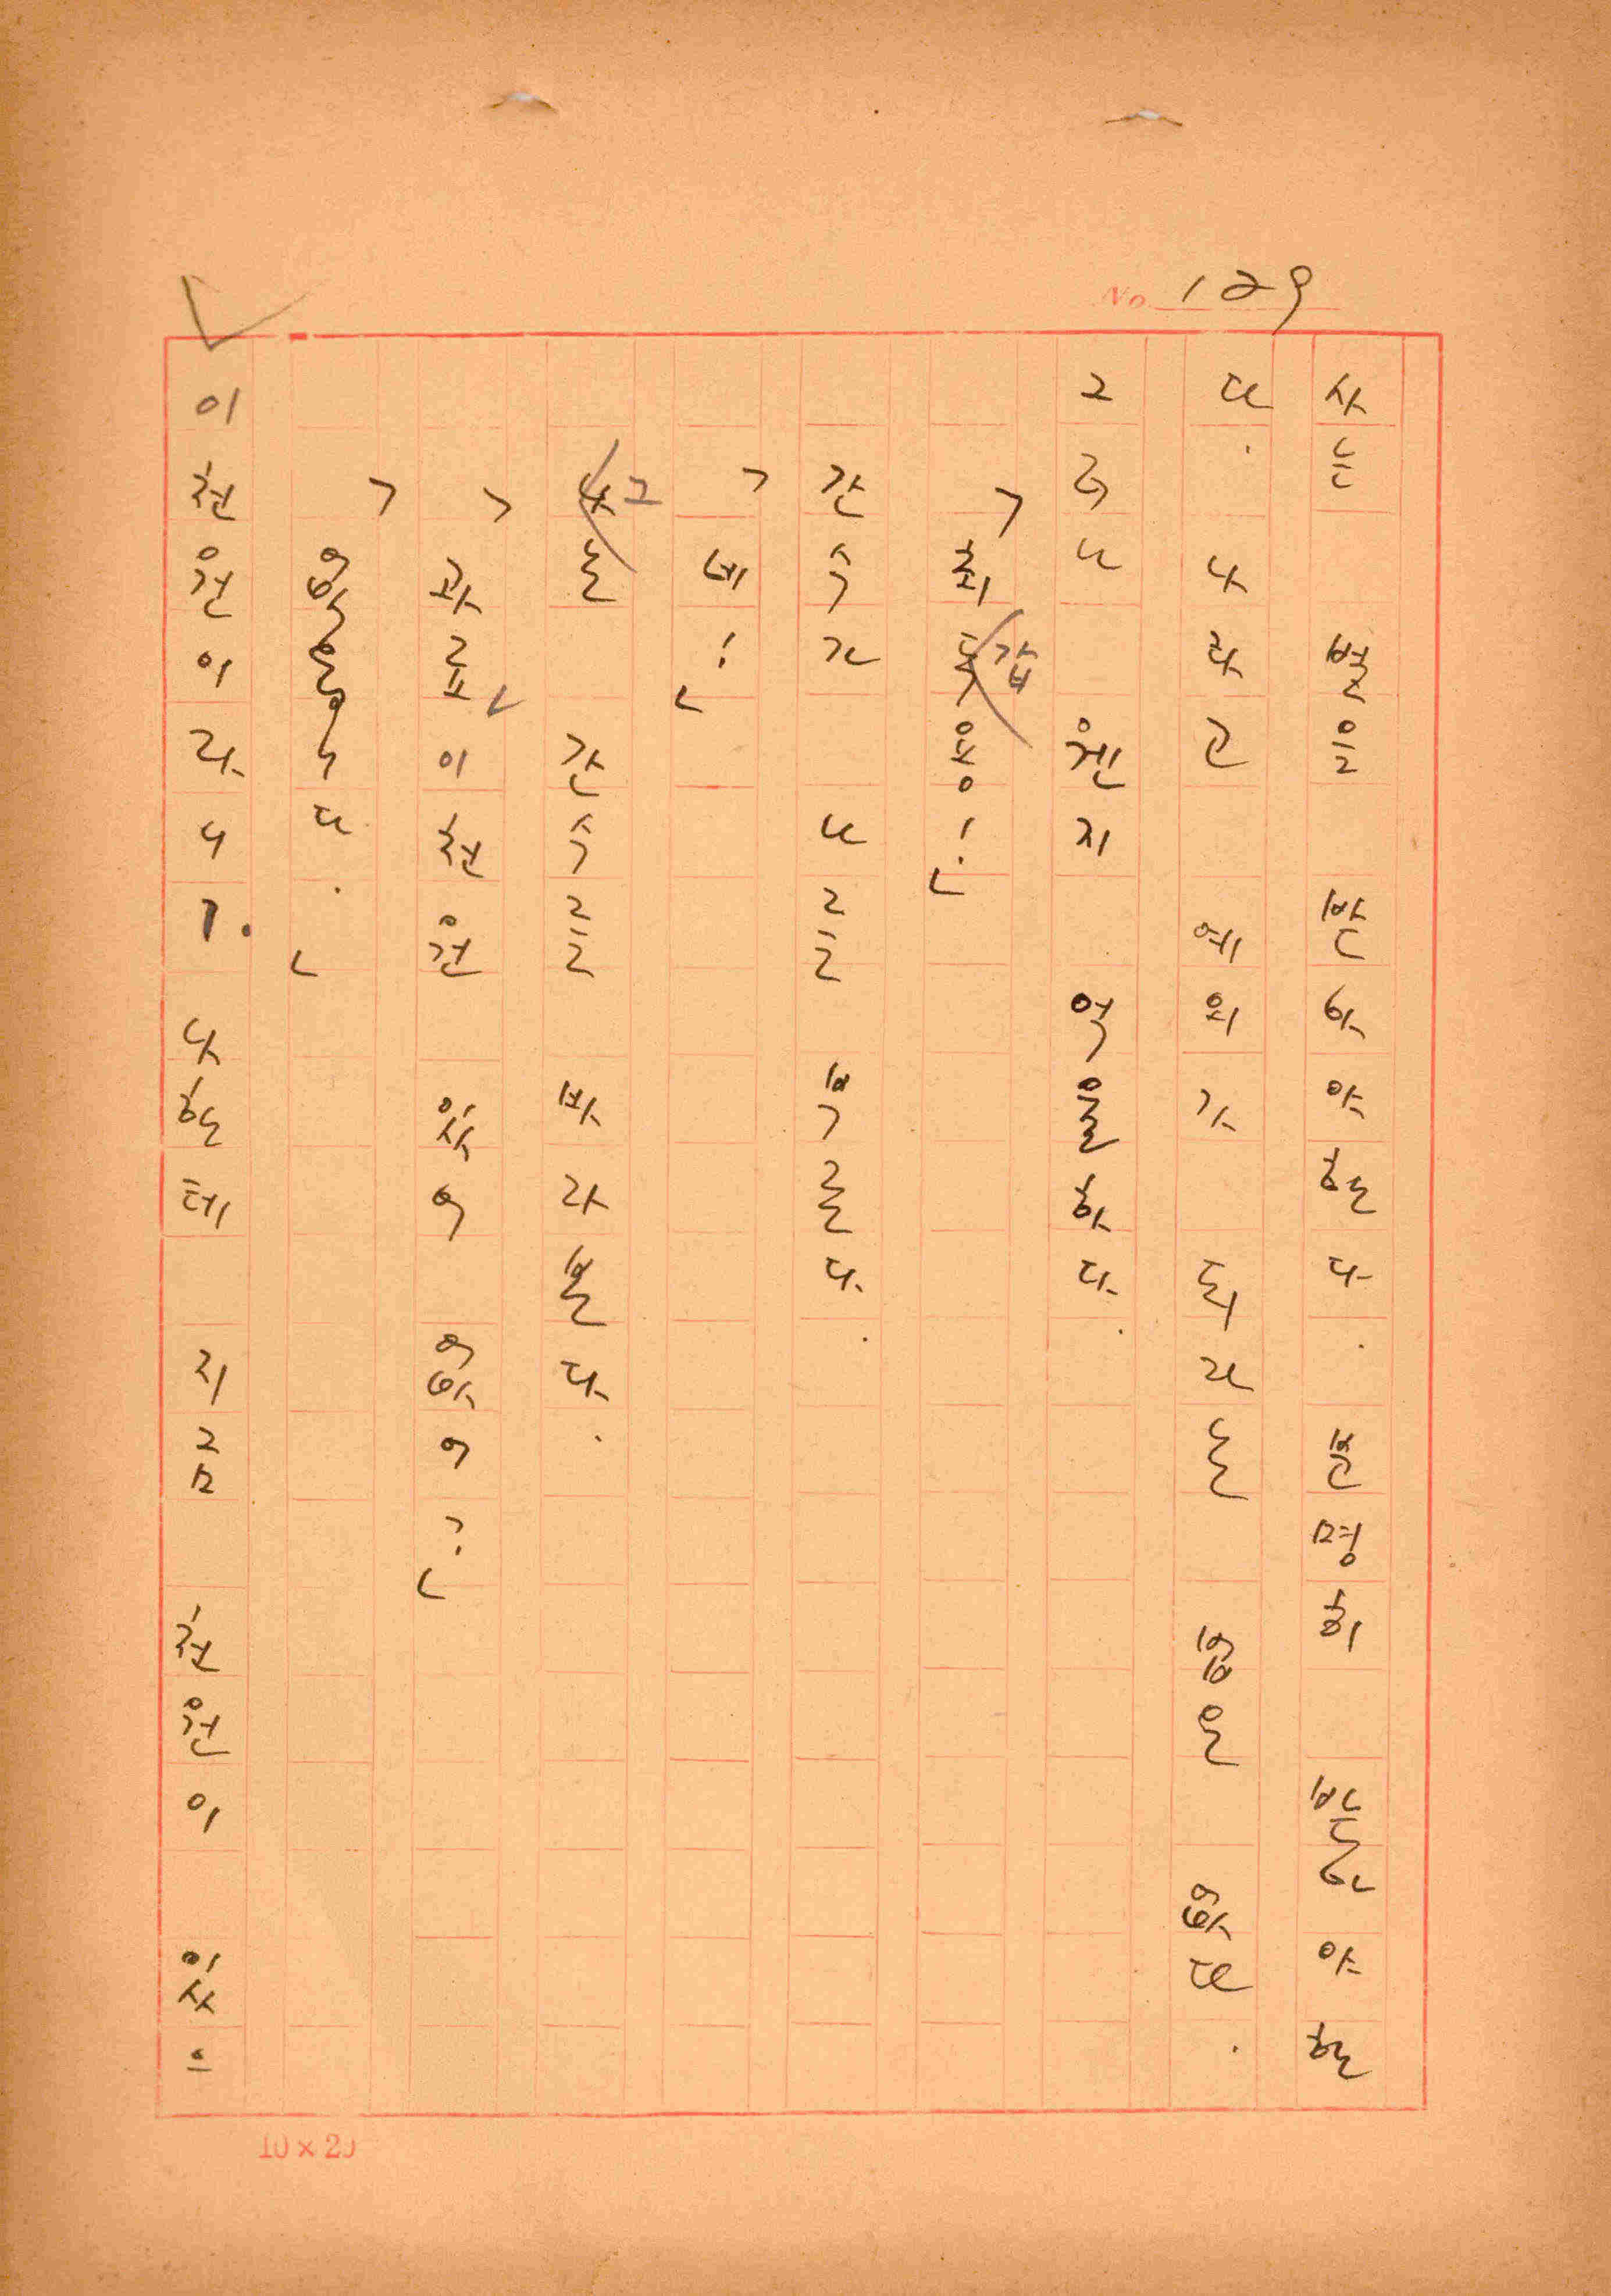 No. 129
사는 벌을 받아야한다. 분명히 받아야한
다. 나라고 예외가 되라는 법은 없다.
그러나 웬지 억울하다.
「최갑용!」
간수가 나를 부른다.
「네!」
그는 간수를 바라본다.
「과료 이천원 있어 없어?」
「없읍니다.」
이천원이라니?. 나한테 지금 천원이 있으
10×20